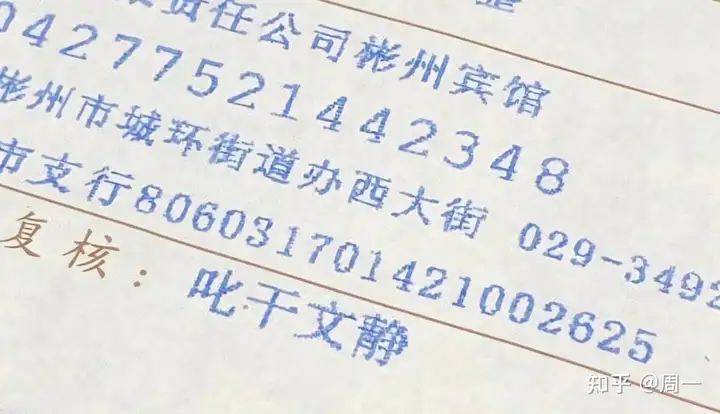 责任公司彬州宾馆
04277521442348
彬州市城环街道办西大街 029-3492
市支行806031701421002625
复核：叱干文静
知乎 @周一